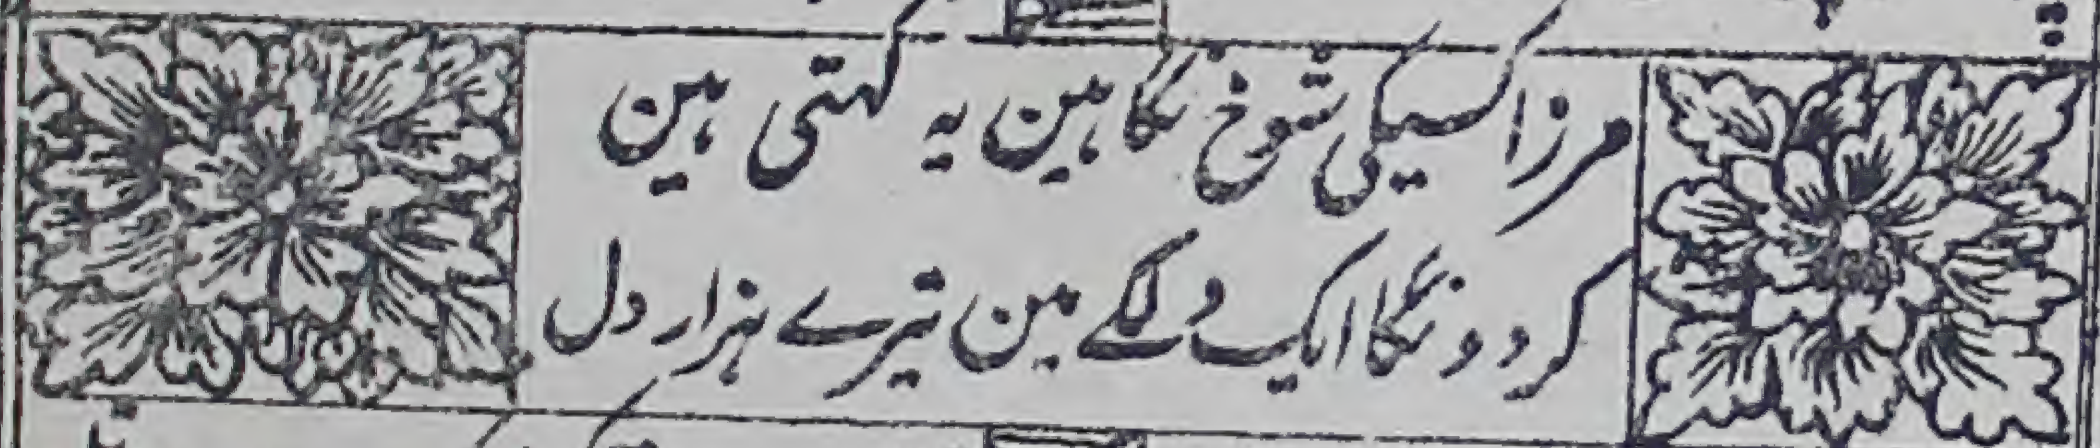 مرزا کسیکی شوخ نگاہین یہ کہتی ہین
کر دونگا ایک دلکے مین تیرے ہزار دل